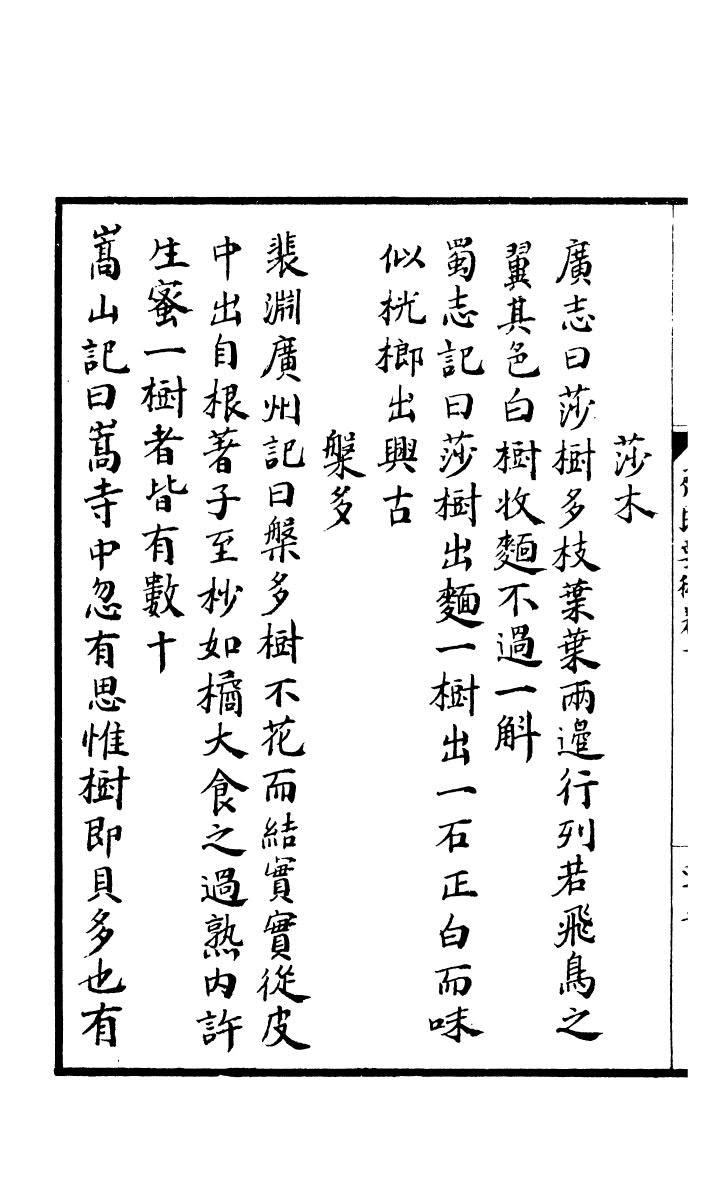 莎木
廣志曰莎樹多枝葉葉兩邊行列若飛鳥之
翼其色白樹收麵不過一斛
蜀志記曰莎樹出麵一樹出一石正白而味
似桄榔出興古
槃多
裴淵廣州記曰槃多樹不花而結實實從皮
中出自根著子至杪如橘大食之過熟内許
生蜜一樹者皆有數十
嵩山記曰嵩寺中忽有思惟樹即貝多也有